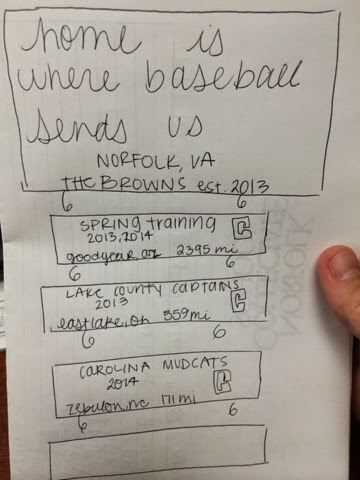 home is
where baseball
sends us
NORFOLK, VA
THE BROWNS est. 2013
SPRING training
2013, 2014
goodyear, az 2395 mi
C
LAKE COUNTY CAPTAINS
2013
eastlake, oh 559 mi
C
CAROLINA MUDCATS
2014
zebulon, nc 171 mi
C